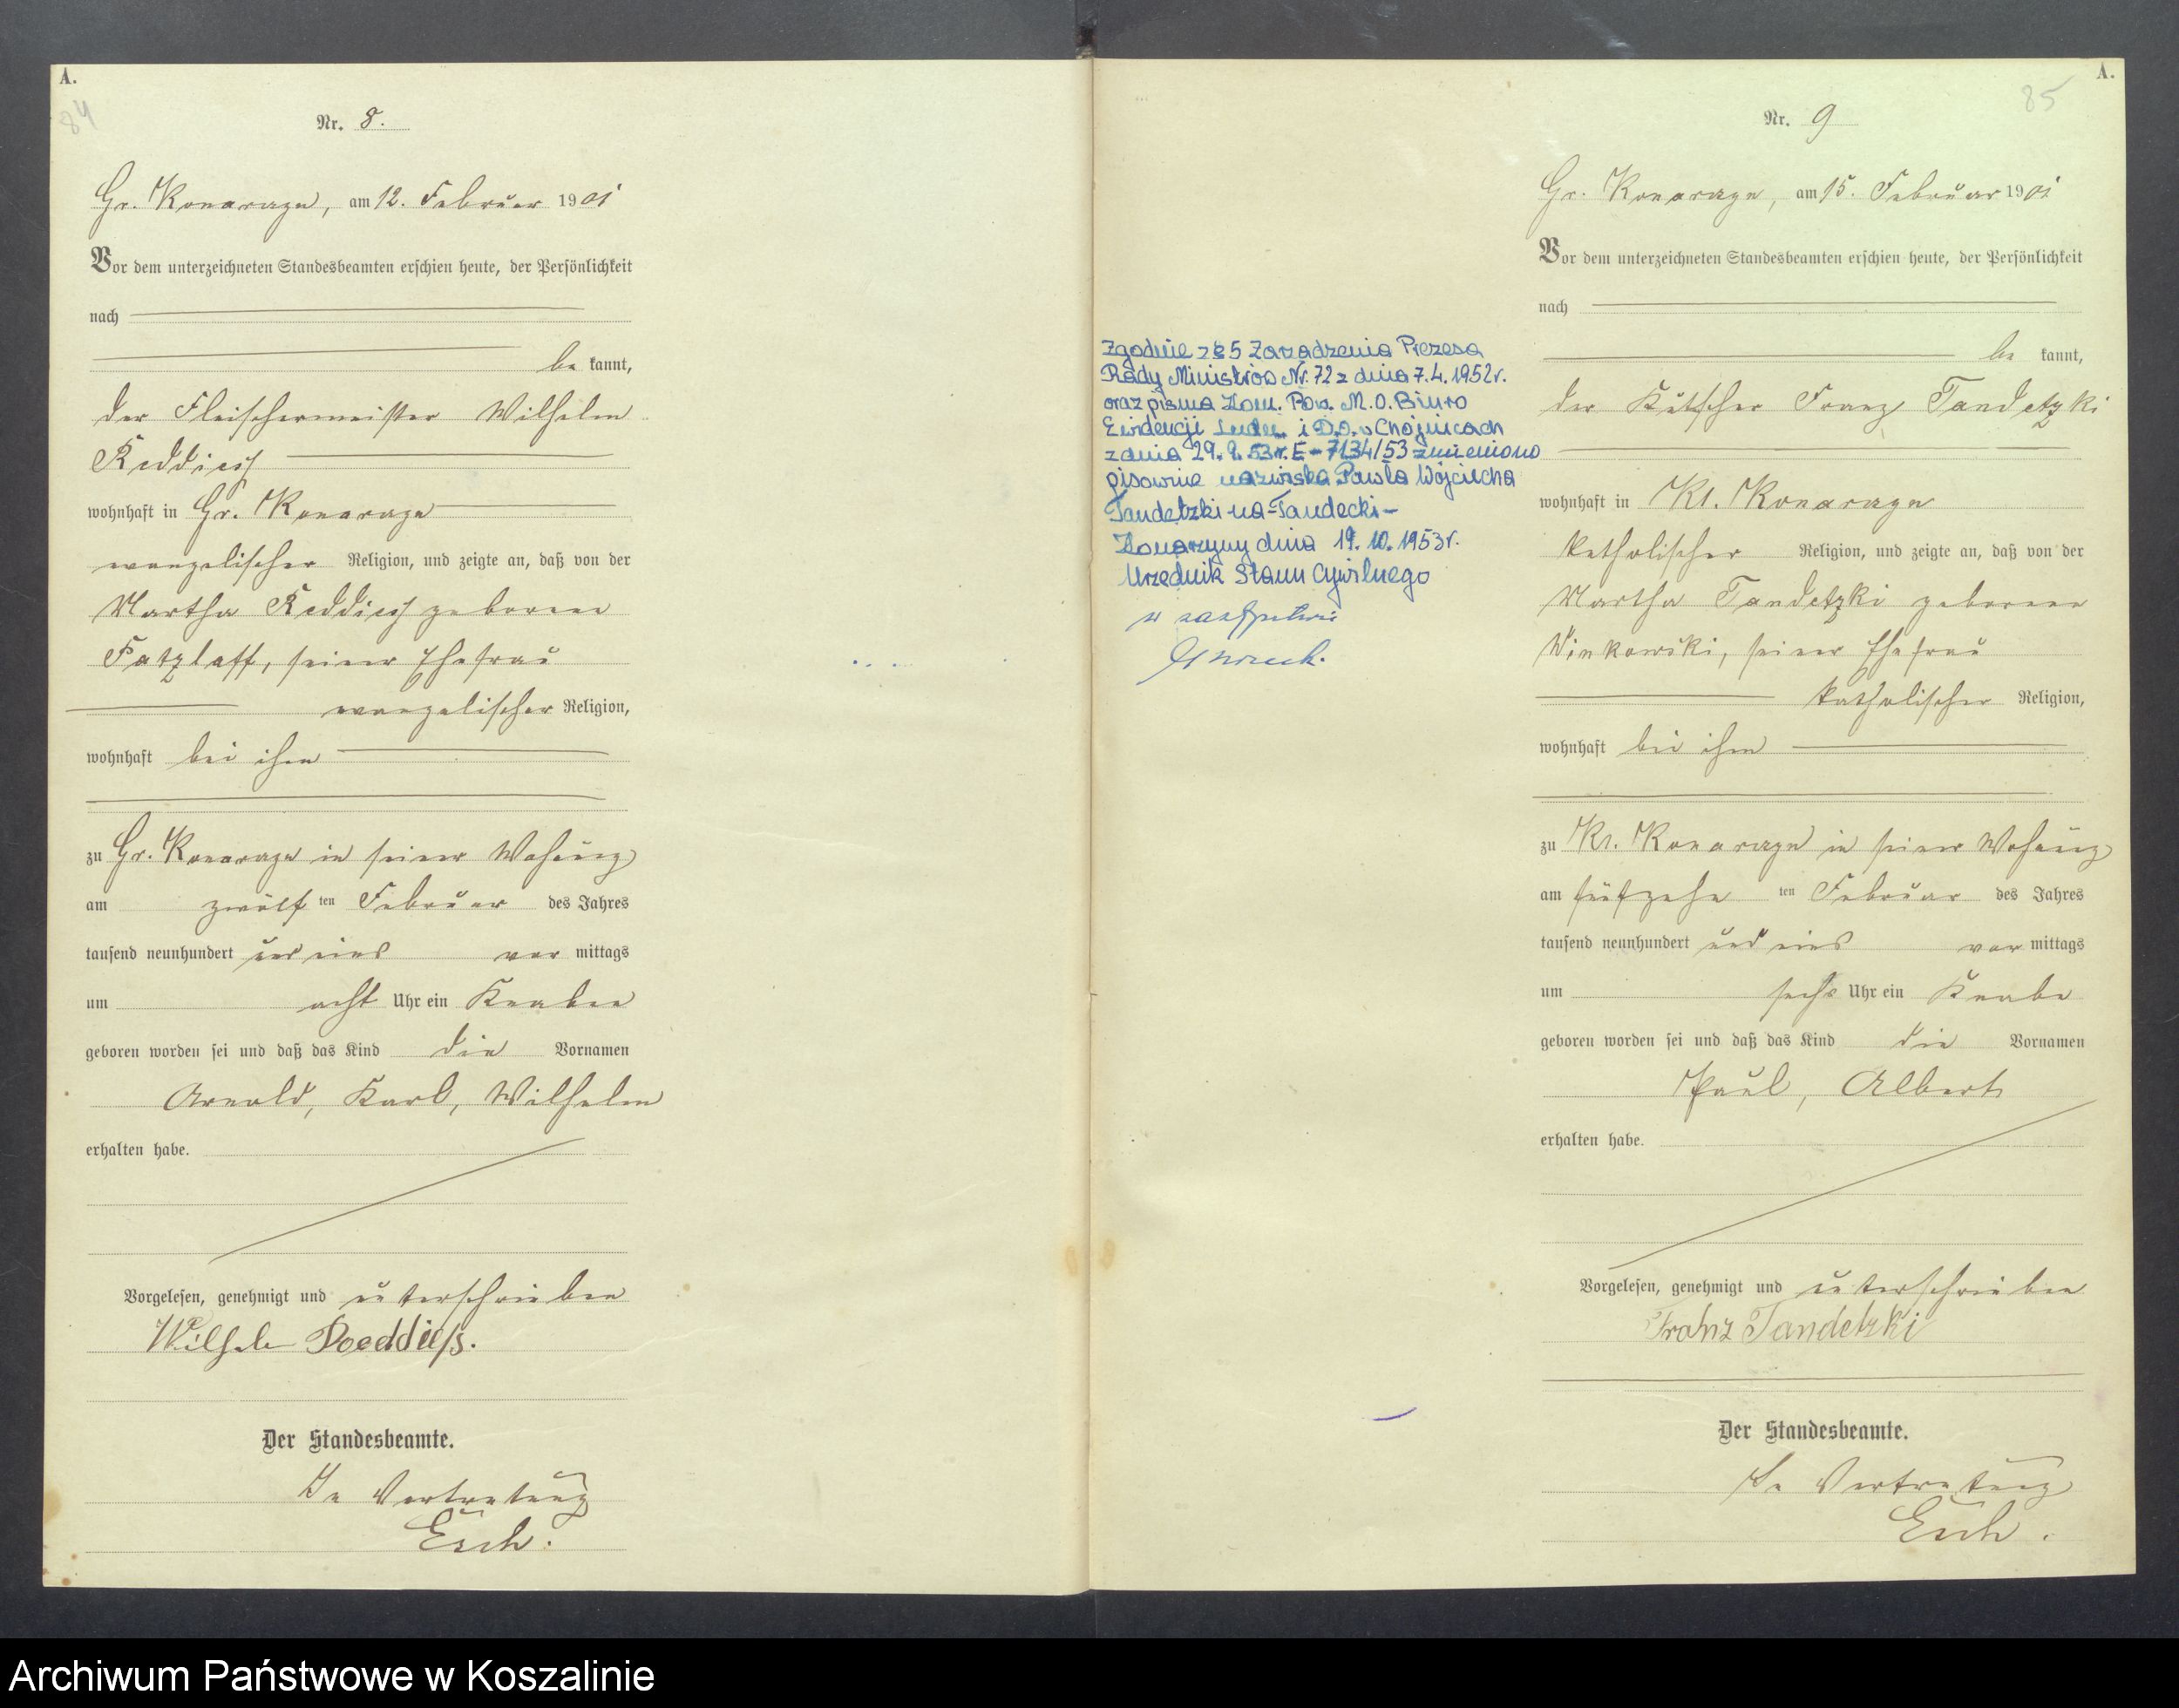 A.
84
Nr. 8.
Gr. Konarczyn, am 12. Februar 1901
Vor dem unterzeichneten Standesbeamten erschien heute, der Persönlichkeit
nach
be kannt,
der Fleischermeister Wilhelm
wohnhaft in Gr. Konarczyn
evangelischer Religion, und zeigte an, daß von der
Martha geborene
Fatzlaff, seiner Ehefrau
evangelischer Religion,
wohnhaft bei ihm
zu Gr. Konarczyn in seiner Wohnung
am zwölf ten Februar des Jahres
tausend neunhundert und eins vor mittags
um acht Uhr ein Knaben
geboren worden sei und daß das Kind die Vornamen
Arnold, Karl, Wilhelm
erhalten habe.
Vorgelesen, genehmigt und unterschrieben
Wilhelm
Der Standesbeamte.
In Vertretung
Esch.
Zgodnie z § 5 Zarządzenia Prezesa
Rady Ministrów Nr. 72 z dnia 7.4.1952r.
oraz pisma Kom. Pow. M.O. Biuro
Ewidencji Ludn. i D.O. w Chojnicach
z dnia 29.9.53r. E-7134/53 zmieniono
pisownię nazwiska Pawła Wojciecha
Tandetzki na -Tandecki-
Konarzyny dnia 19.10.1953r.
Urzędnik Stanu Cywilnego
w zastępstwie
A.
85
Nr. 9
Gr. Konarczyn, am 15. Februar 1901
Vor dem unterzeichneten Standesbeamten erschien heute, der Persönlichkeit
nach
be kannt,
der Kutscher Franz Tandetzki
wohnhaft in Kl. Konarczyn
katholischer Religion, und zeigte an, daß von der
Martha Tandetzki geborene
Winkowski, seiner Ehefrau
katholischer Religion,
wohnhaft bei ihm
zu Kl. Konarczyn in seiner Wohnung
am fünfzehn ten Februar des Jahres
tausend neunhundert und eins vor mittags
um sechs Uhr ein Knabe
geboren worden sei und daß das Kind die Vornamen
Paul, Albert
erhalten habe.
Vorgelesen, genehmigt und unterschrieben
Franz Tandetzki
Der Standesbeamte.
In Vertretung
Esch.
Archiwum Państwowe w Koszalinie